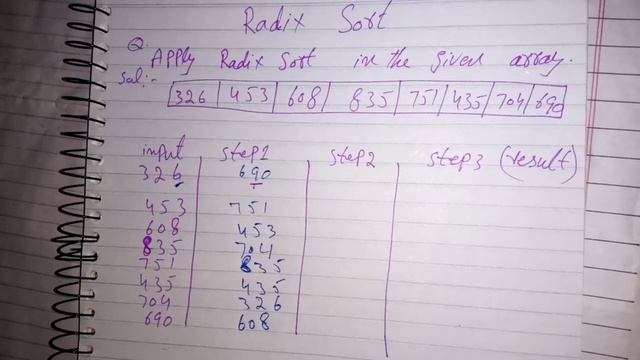 Radix Sort
Q. Apply Radix Sort in the given array.
Sol:-
326 453 608 835 751 435 704 690
input step1 step2 step3 (result)
326 690
453 751
608 453
835 704
751 835
435 435
704 326
690 608